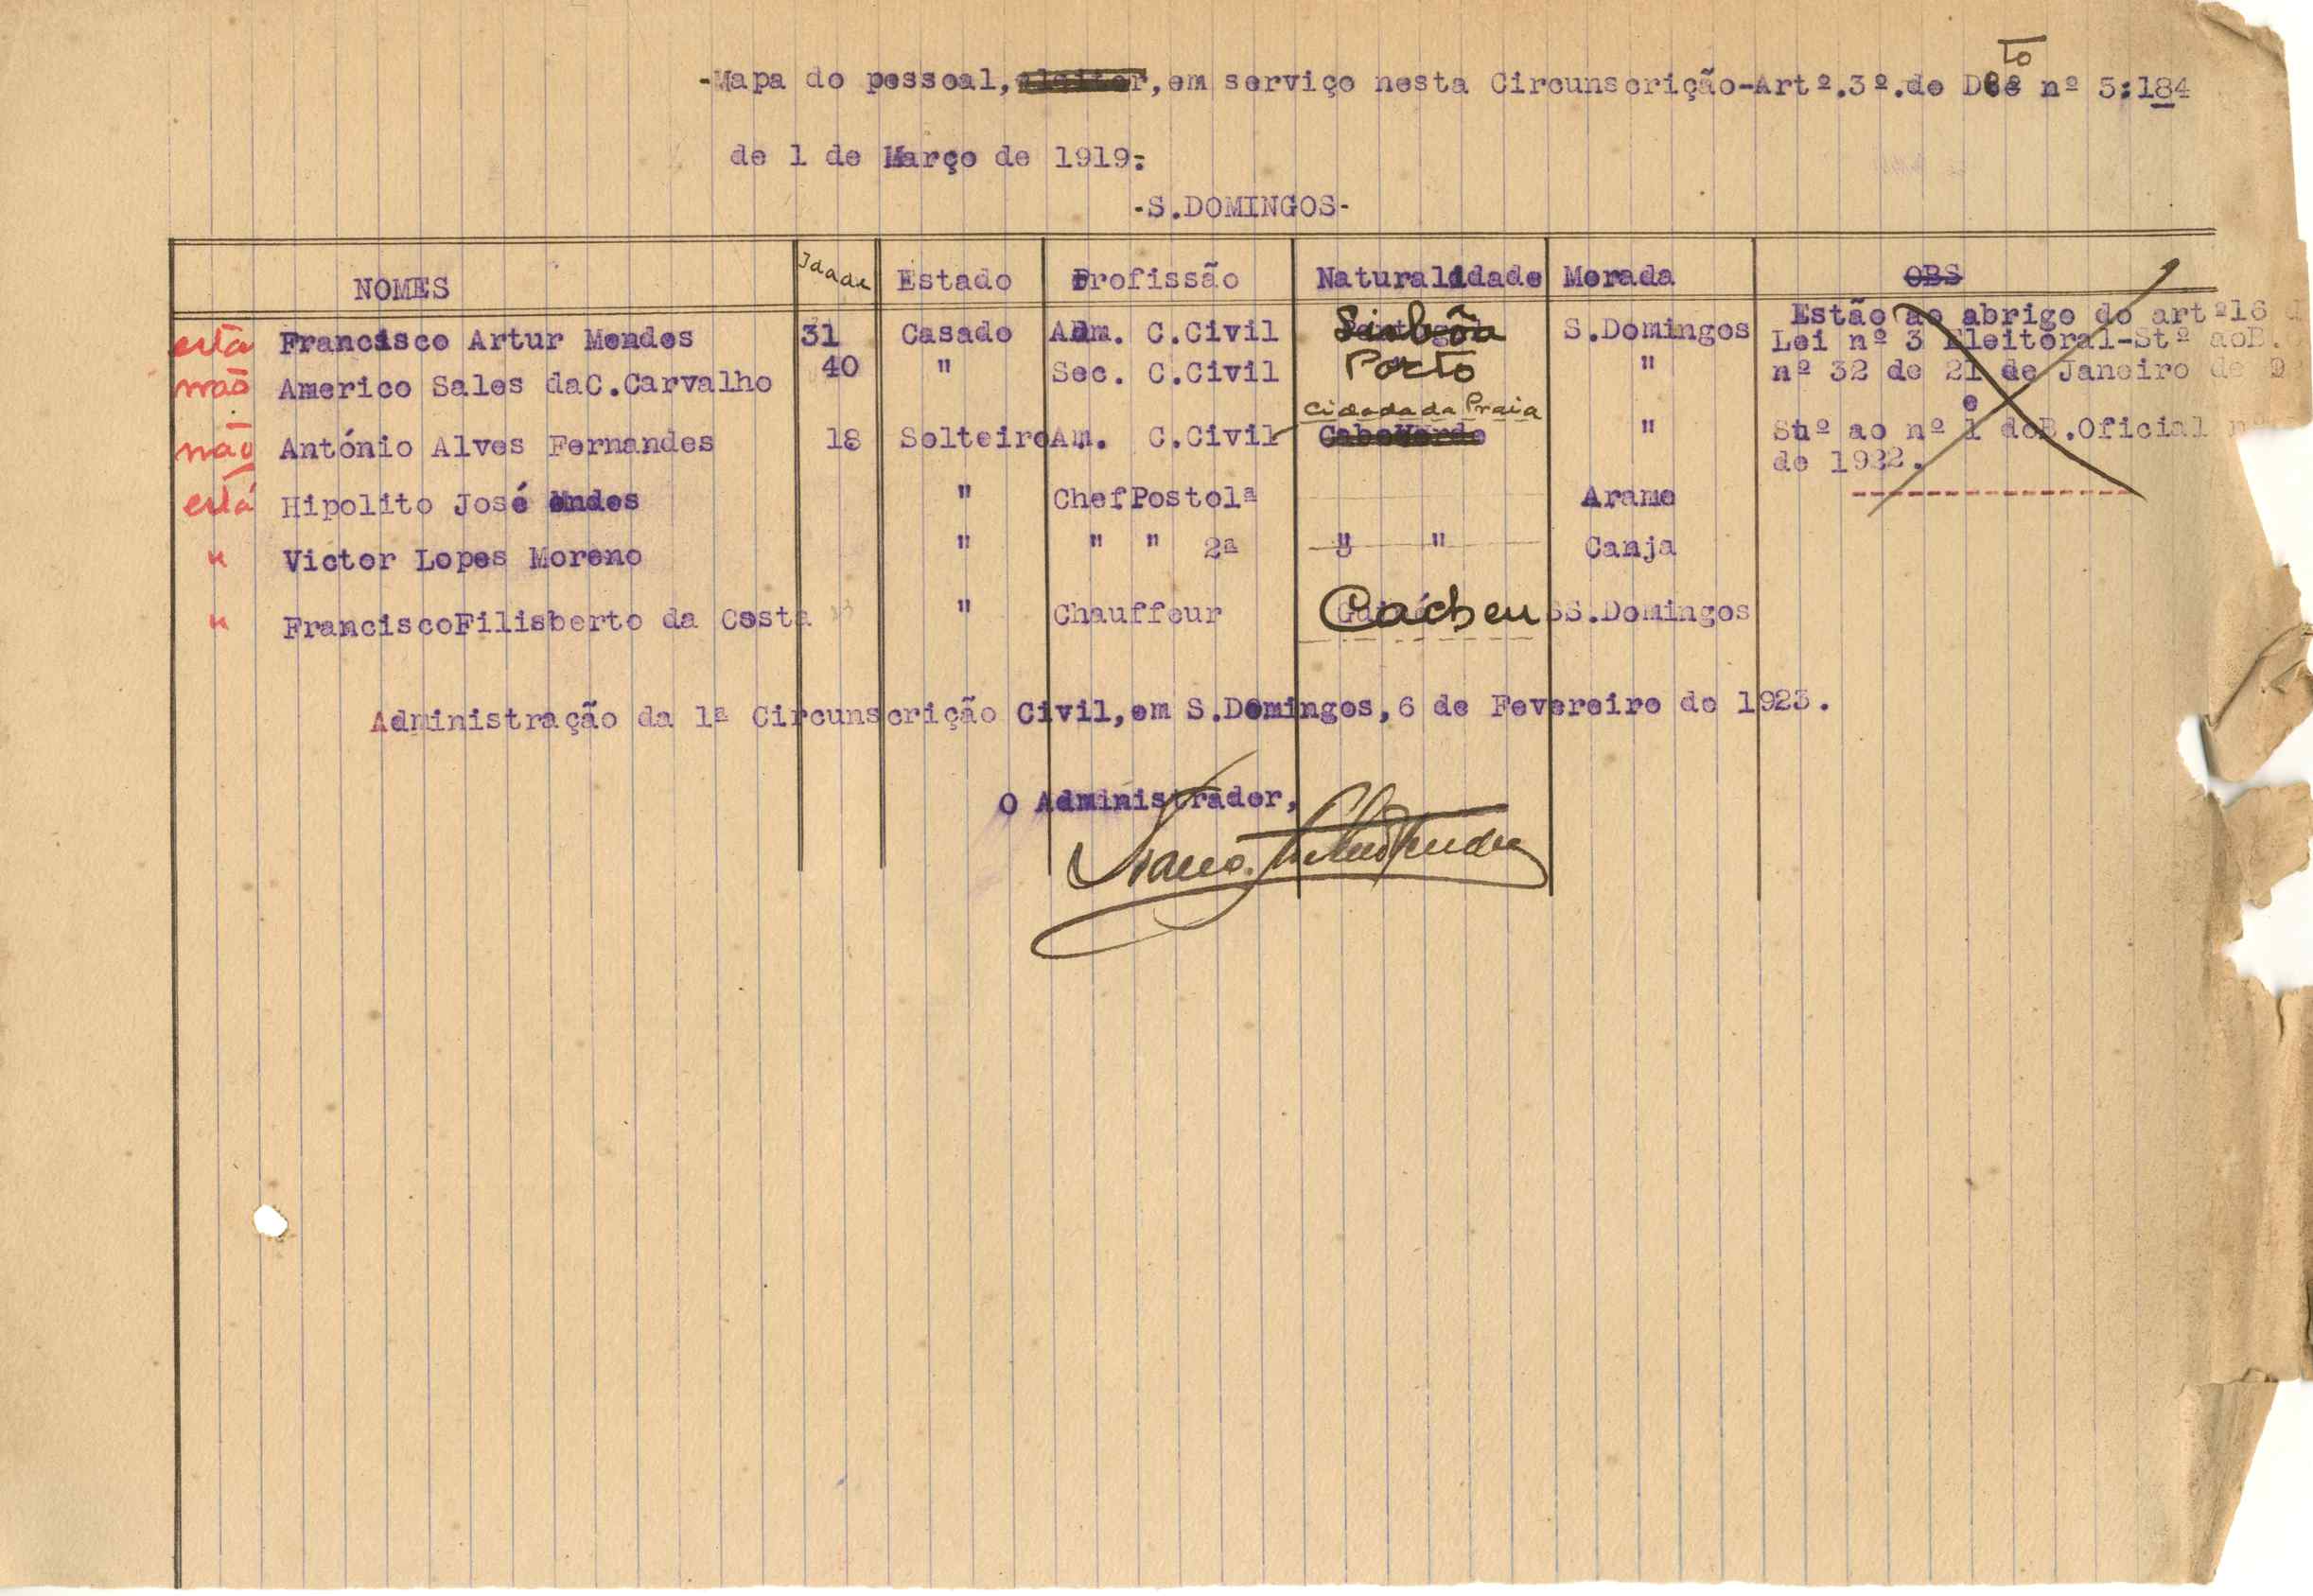 -Mapa do pessoal, em serviço nesta Circunscrição-Artº.3º.do Dto nº 5:184
de 1 de Março de 1919:
-S.DOMINGOS-
NOMES Idade Estado Profissão Naturalidade Morada OBS
está Francisco Artur Mendes 31 Casado Adm. C.Civil Lisbôa S.Domingos Estão ao abrigo do artº16 d
não Americo Sales daC.Carvalho 40 " Sec. C.Civil Porto " Lei nº 3 Eleitoral-Stº aoB.
nº 32 de 21 de Janeiro de 9
Cidade da Praia e
não António Alves Fernandes 18 Solteiro Am. C.Civil CaboVerde " Stº ao nº 1 doB.Oficial nº
de 1922.
está Hipolito José Mendes " ChefPosto1ª Arame
" Victor Lopes Moreno " " " 2ª " " Canja
" FranciscoFilisberto da Costa " Chauffeur Cacheu SS.Domingos
Administração da 1ª Circunscrição Civil,em S.Domingos,6 de Fevereiro de 1923.
O Administrador,